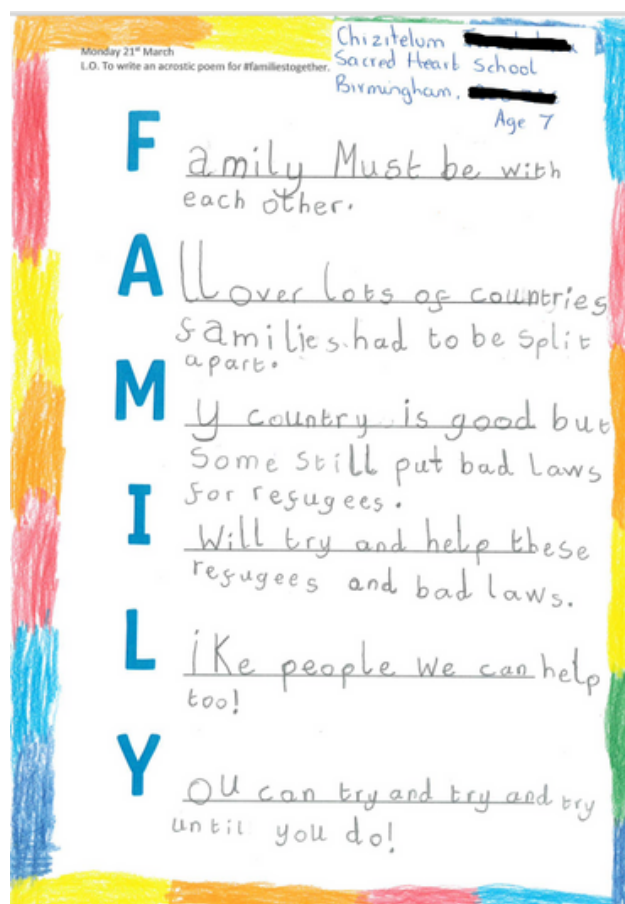 Monday 21st March
L.O. To write an acrostic poem for #familiestogether.
Chizitelum
Sacred Heart School
Birmingham,
Age 7
Family Must be with
each other.
All over lots of countries
families had to be split
apart.
My country is good but
some still put bad laws
for refugees.
I Will try and help these
refugees and bad laws.
Like people we can help
too!
You can try and try and try
until you do!